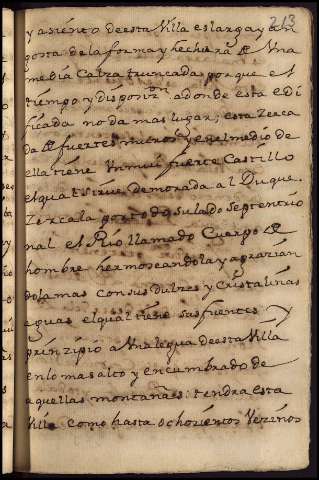 213
y asiento deesta Villa es larga y an
gosta de la forma y hechura de Una
media Calza truncada porque el
tiempo y disposiz.on adonde esta edi
ficada no da mas lugar; esta Zerca
da de fuertes muros y en el medio de
ella tiene Un mui fuerte Castillo
el qual sirve de morada al Duque.
Zercala por todo su lado Septentrio
nal el Rio llamado Cuerpo de
hombre hermoseandola y
dola mas con sus dulzes y Cristalinas
aguas el qual tiene sus fuentes y
prinzipio a Una legua deesta Villa
en lo mas alto y encumbrado de
aquellas montañas: tendra esta
Villa como hasta ochozientos Vezinos